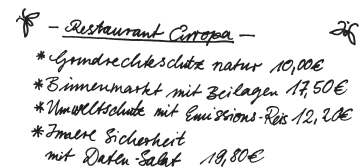 – Restaurant Europa –
* Grundrechteschutz natur 10,00€
* Binnenmarkt mit Beilagen 17,50€
* Umweltschutz mit Emissions-Reis 12,20€
* Innere Sicherheit
mit Daten-Salat 19,80€